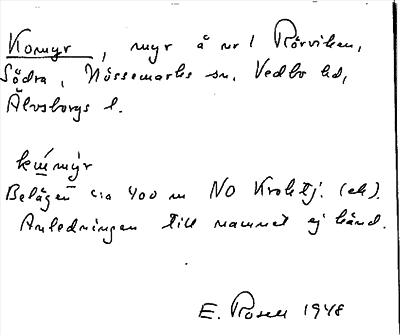 Komyr, myr å nr 1 Rörviken,
Södra, Nössemarks sn, Vedbo hd,
Älvsborgs l.
kọmy̆r
Belägen c:a 400 m NO Kroktj. (ek).
Anledningen till namnet ej känd.
E. Rosell 1948